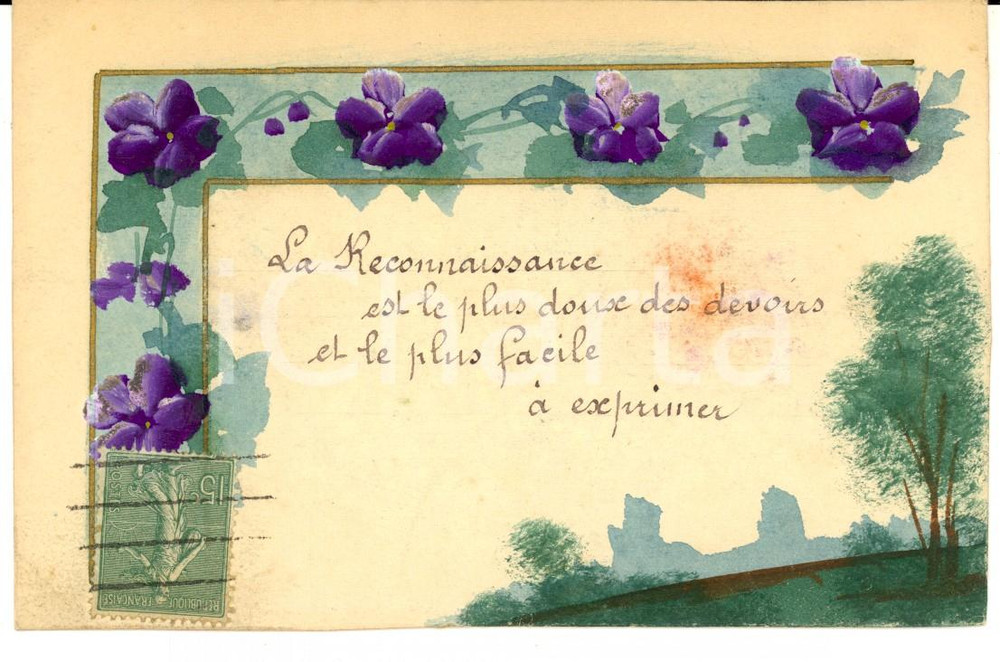 La Reconnaissance
est le plus doux des devoirs
et le plus facile
à exprimer
iCharta
15c
POSTES
REPUBLIQUE FRANÇAISE